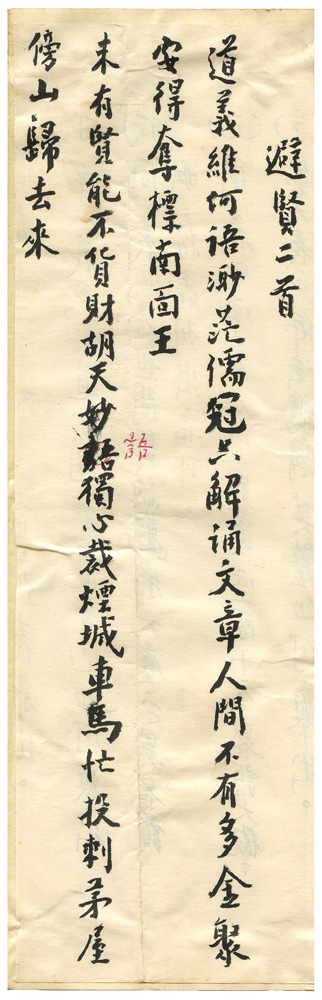 避賢二首
道義維何語渺茫儒冠只解誦文章人間不有多金聚
安得奪標南面王
未有賢能不貨財胡天妙語獨心裁煙城車馬忙投刺茅屋
傍山歸去來